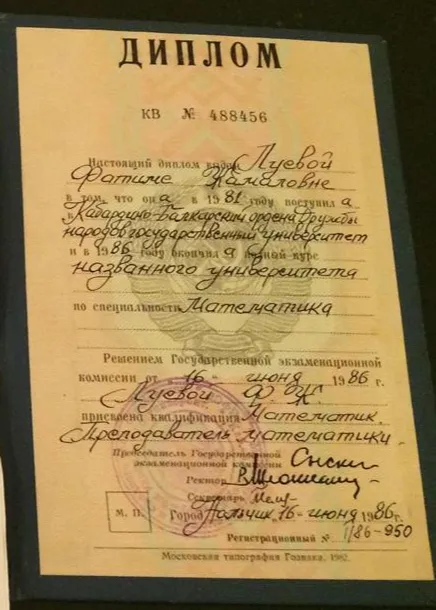 ДИПЛОМ
КВ № 488456
Настоящий диплом выдан Луевой
Фатиме Жамаловне
в том, что она в 1981 году поступила
в Кабардино-Балкарский ордена Дружбы
народов государственный университет
и в 1986 году окончила полный курс
названного университета
по специальности Математика
Решением Государственной экзаменационной
комиссии от 16 июня 1986 г.
Луевой Ф. Ж.
присвоена квалификация Математик.
Преподаватель математики
Председатель Государственной
экзаменационной комиссии
Ректор
Секретарь
М. П. Город Нальчик, 16 июня 1986 г.
Регистрационный № 1/86-950
Московская типография Гознака. 1982.